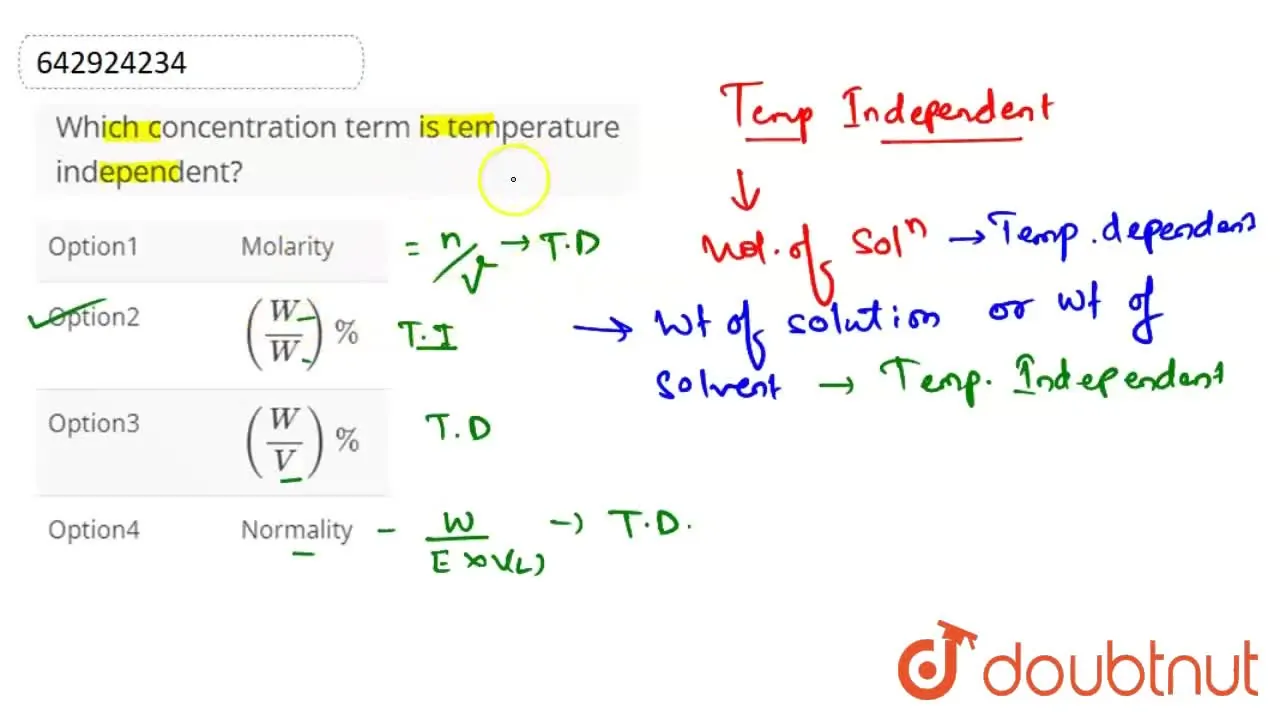 642924234
Which concentration term is temperature
independent?
Option1 Molarity = n/V → T.D
Option2 (W/W) % T.I
Option3 (W/V) % T.D
Option4 Normality - W/E×V(L) → T.D.
Temp Independent
↓
Vol. of Solⁿ → Temp. dependent
→ Wt of solution or wt of
solvent → Temp. Independent
doubtnut